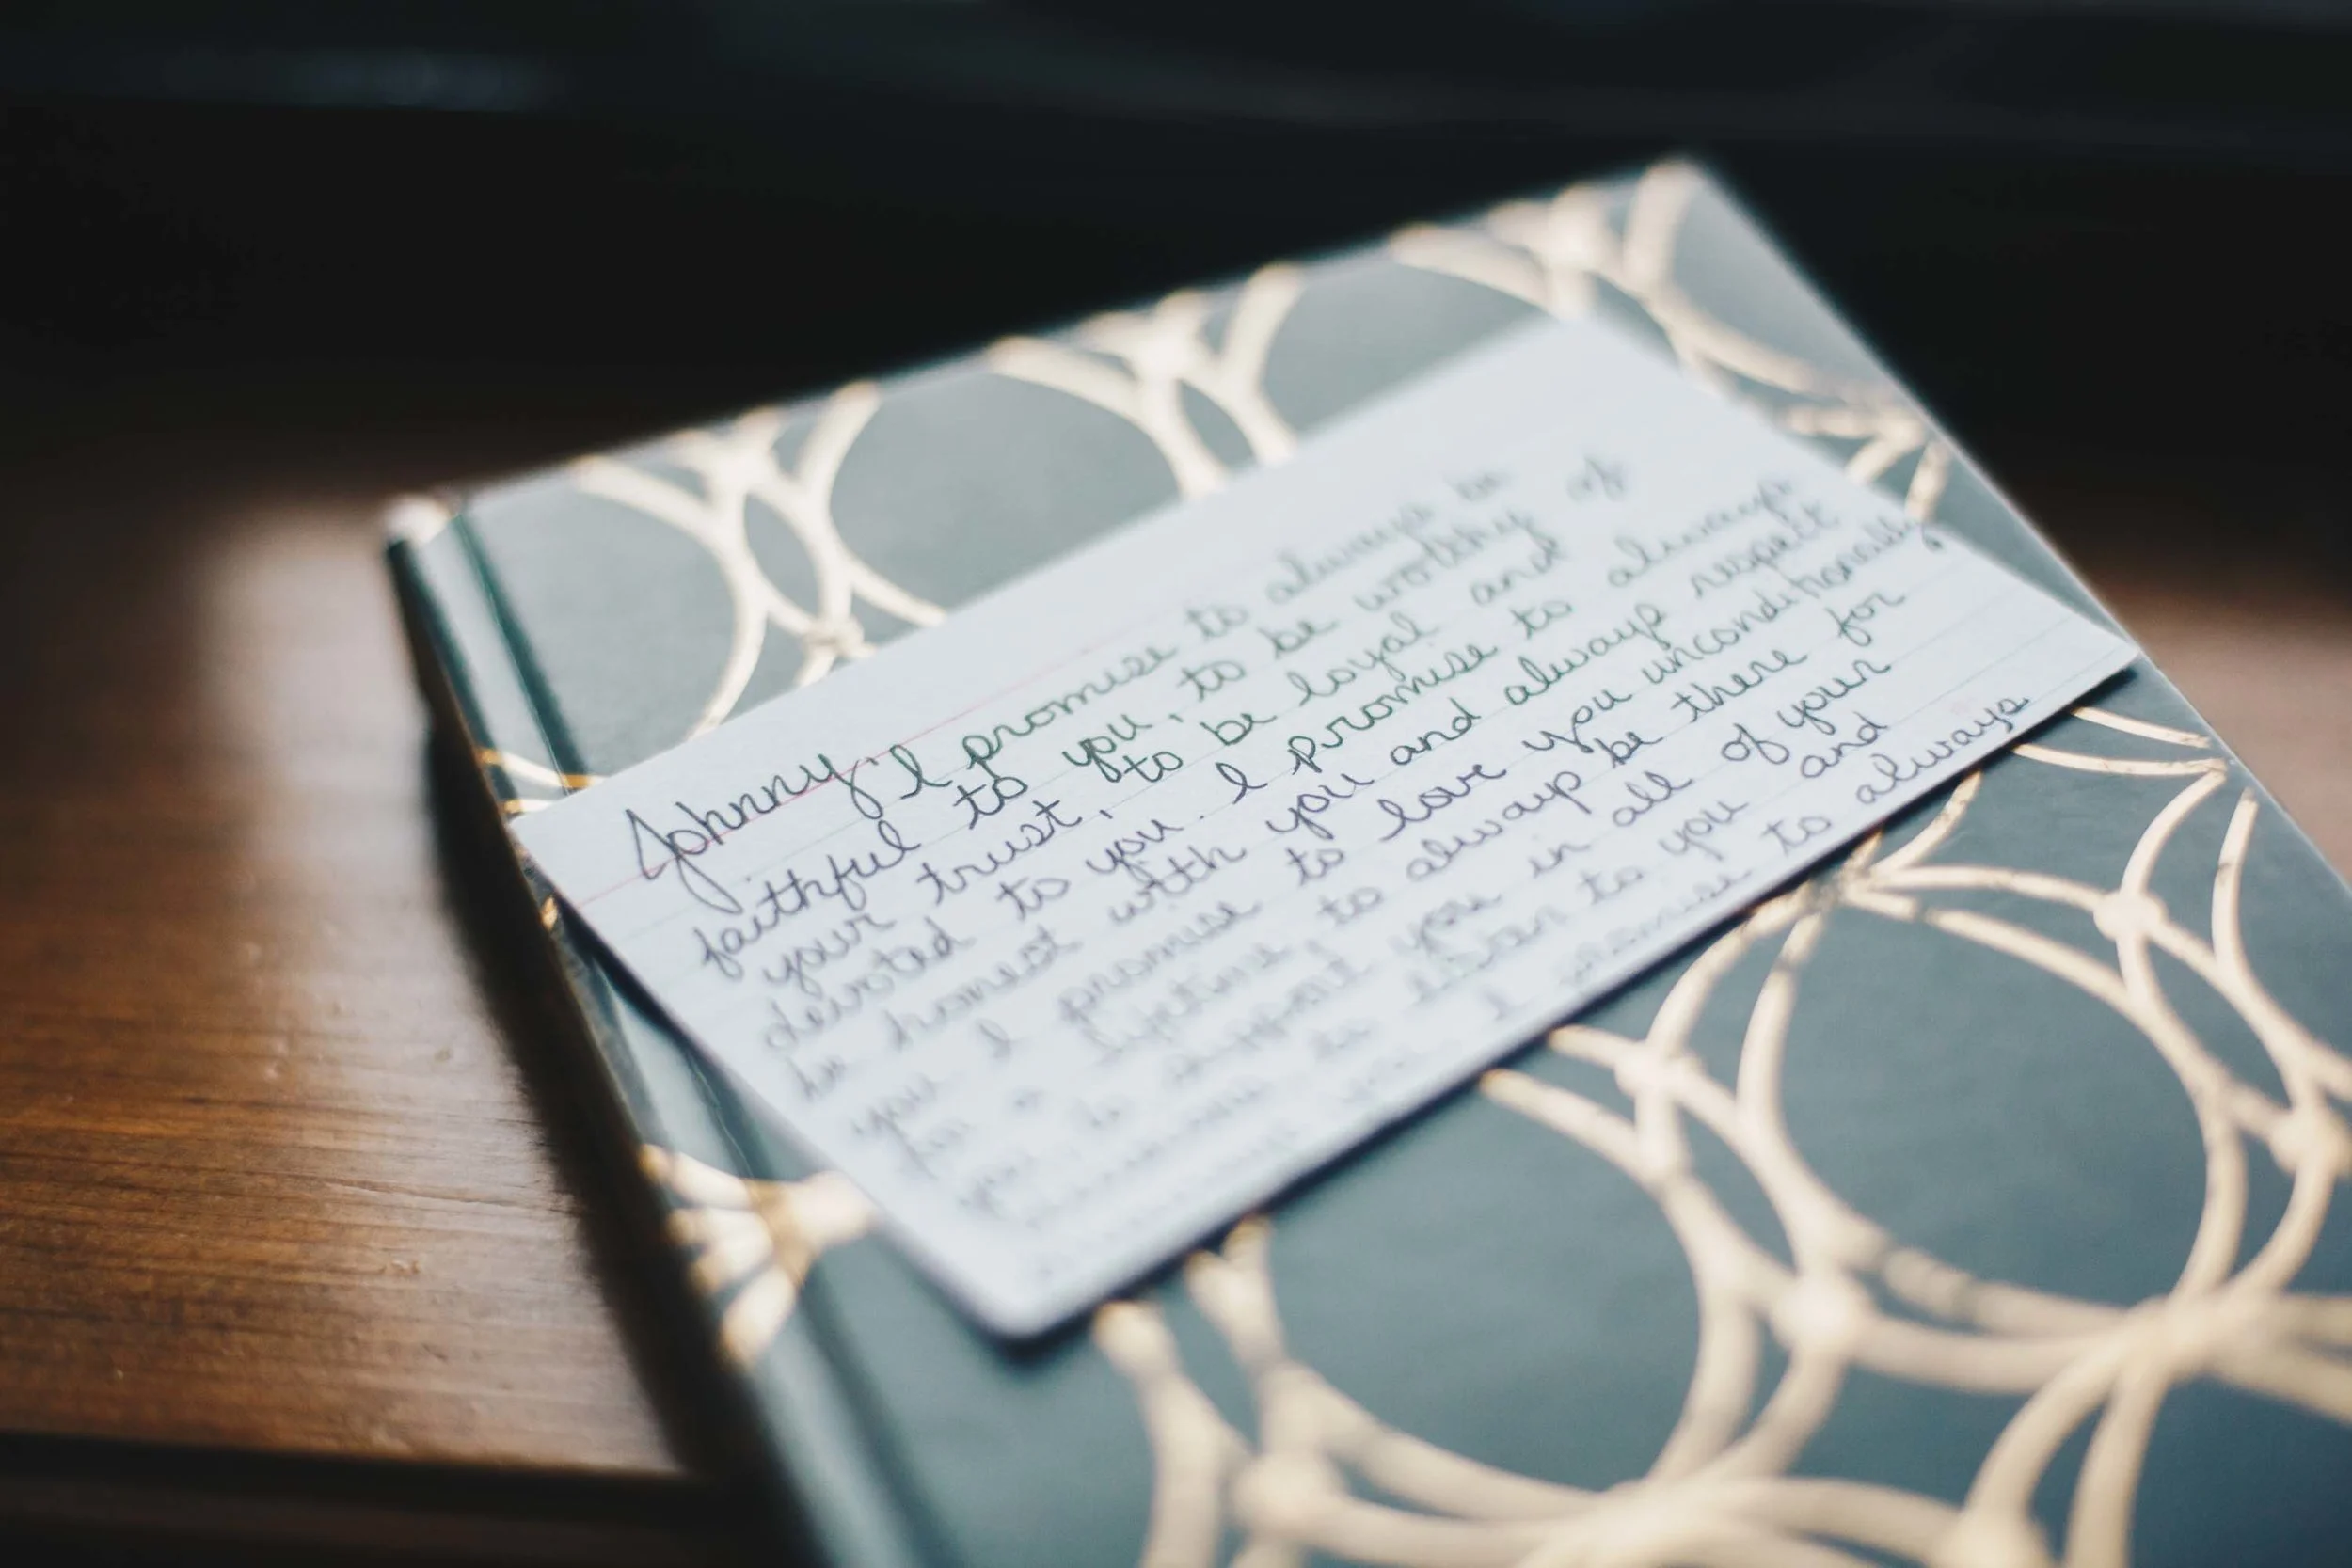 Johnny, I promise to always be
faithful to you, to be worthy of
your trust, to be loyal and
devoted to you. I promise to always
be honest with you and always respect
you I promise to love you unconditionally
for a lifetime, to always be there for
you, to support you in all of your
to listen to you and
I promise to always
you.